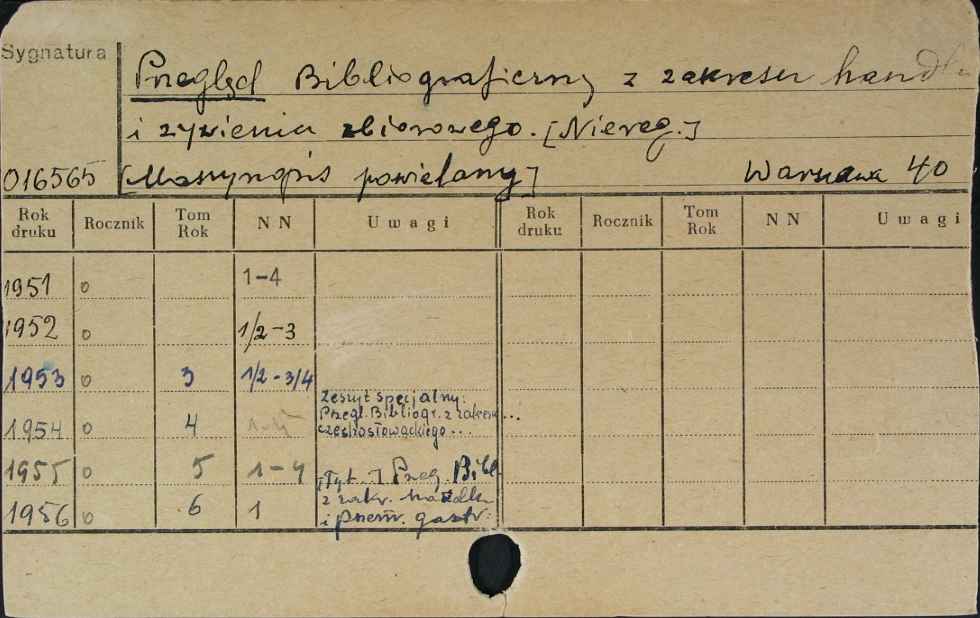 Sygnatura
Przegląd Bibliograficzny z zakresu handlu
i żywienia zbiorowego. [Niereg.]
016565 [Maszynopis powielany] Warszawa 40
Rok druku Rocznik Tom Rok NN Uwagi Rok druku Rocznik Tom Rok NN Uwagi
1951 0 1-4
1952 0 1/2-3
1953 0 3 1/2-3/4
Zeszyt specjalny:
Przegl. Bibliogr. z zakresu ...
1954 0 4 1-4 czechosłowackiego ...
1955 0 5 1-4 [Tyt.] Przeg. Bibl.
z zakr. handlu
1956 0 6 1 i przem. gastr.